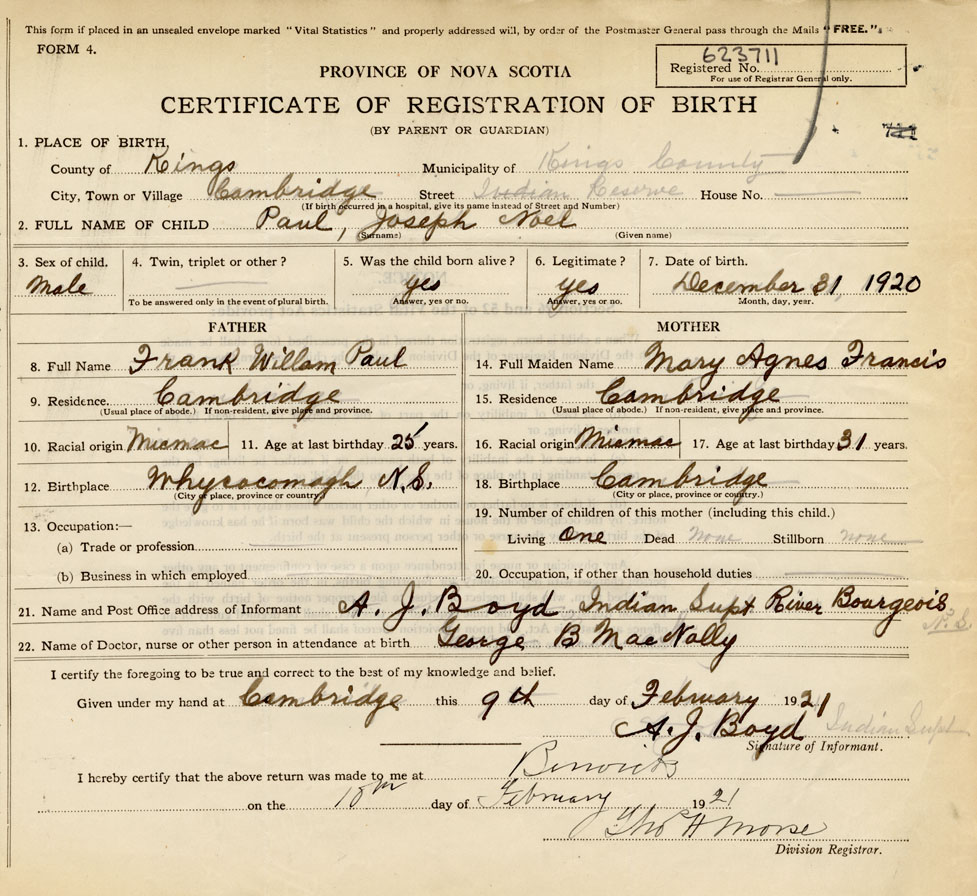 This form if placed in an unsealed envelope marked "Vital Statistics" and properly addressed will, by order of the Postmaster General pass through the Mails "FREE."
FORM 4.
623711
Registered No.
For use of Registrar General only.
PROVINCE OF NOVA SCOTIA
CERTIFICATE OF REGISTRATION OF BIRTH
(BY PARENT OR GUARDIAN)
1. PLACE OF BIRTH,
County of Kings Municipality of Kings County
City, Town or Village Cambridge Street Indian Reserve House No.
(If birth occurred in a hospital, give its name instead of Street and Number)
2. FULL NAME OF CHILD Paul, Joseph Noel
(Surname) (Given name)
3. Sex of child. 4. Twin, triplet or other? 5. Was the child born alive? 6. Legitimate? 7. Date of birth.
Male yes yes December 31, 1920
To be answered only in the event of plural birth. Answer, yes or no. Answer, yes or no. Month, day, year.
FATHER MOTHER
8. Full Name Frank Willam Paul 14. Full Maiden Name Mary Agnes Francis
9. Residence. Cambridge 15. Residence Cambridge
(Usual place of abode.) If non-resident, give place and province. (Usual place of abode.) If non-resident, give place and province.
10. Racial origin Micmac 11. Age at last birthday 25 years. 16. Racial origin Micmac 17. Age at last birthday 31 years.
12. Birthplace Whycocomagh, N.S. 18. Birthplace Cambridge
(City or place, province or country.) (City or place, province or country.)
13. Occupation:— 19. Number of children of this mother (including this child.)
(a) Trade or profession Living One Dead None Stillborn none
(b) Business in which employed 20. Occupation, if other than household duties
21. Name and Post Office address of Informant A. J. Boyd Indian Supt River Bourgeois N.S.
22. Name of Doctor, nurse or other person in attendance at birth George B MacNally
I certify the foregoing to be true and correct to the best of my knowledge and belief.
Given under my hand at Cambridge this 9th day of February 1921
A. J. Boyd Indian Supt
Signature of Informant.
I hereby certify that the above return was made to me at Berwick
on the 10th day of February 1921
Thos H Morse
Division Registrar.